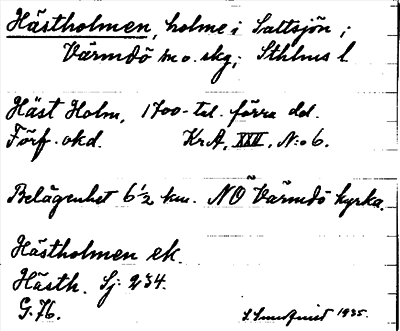 Hästholmen, holme i Saltsjön ;
Värmdö sn o. skg; Sthlms l.
Häst Holm, 1700-tal. förra del.
Förf. okd. KrA, XXII, N:o 6.
Belägenhet 6 ½ km. NO Värmdö kyrka.
Hästholmen ek.
Hästh. Sj: 234.
G. 76. 1935.